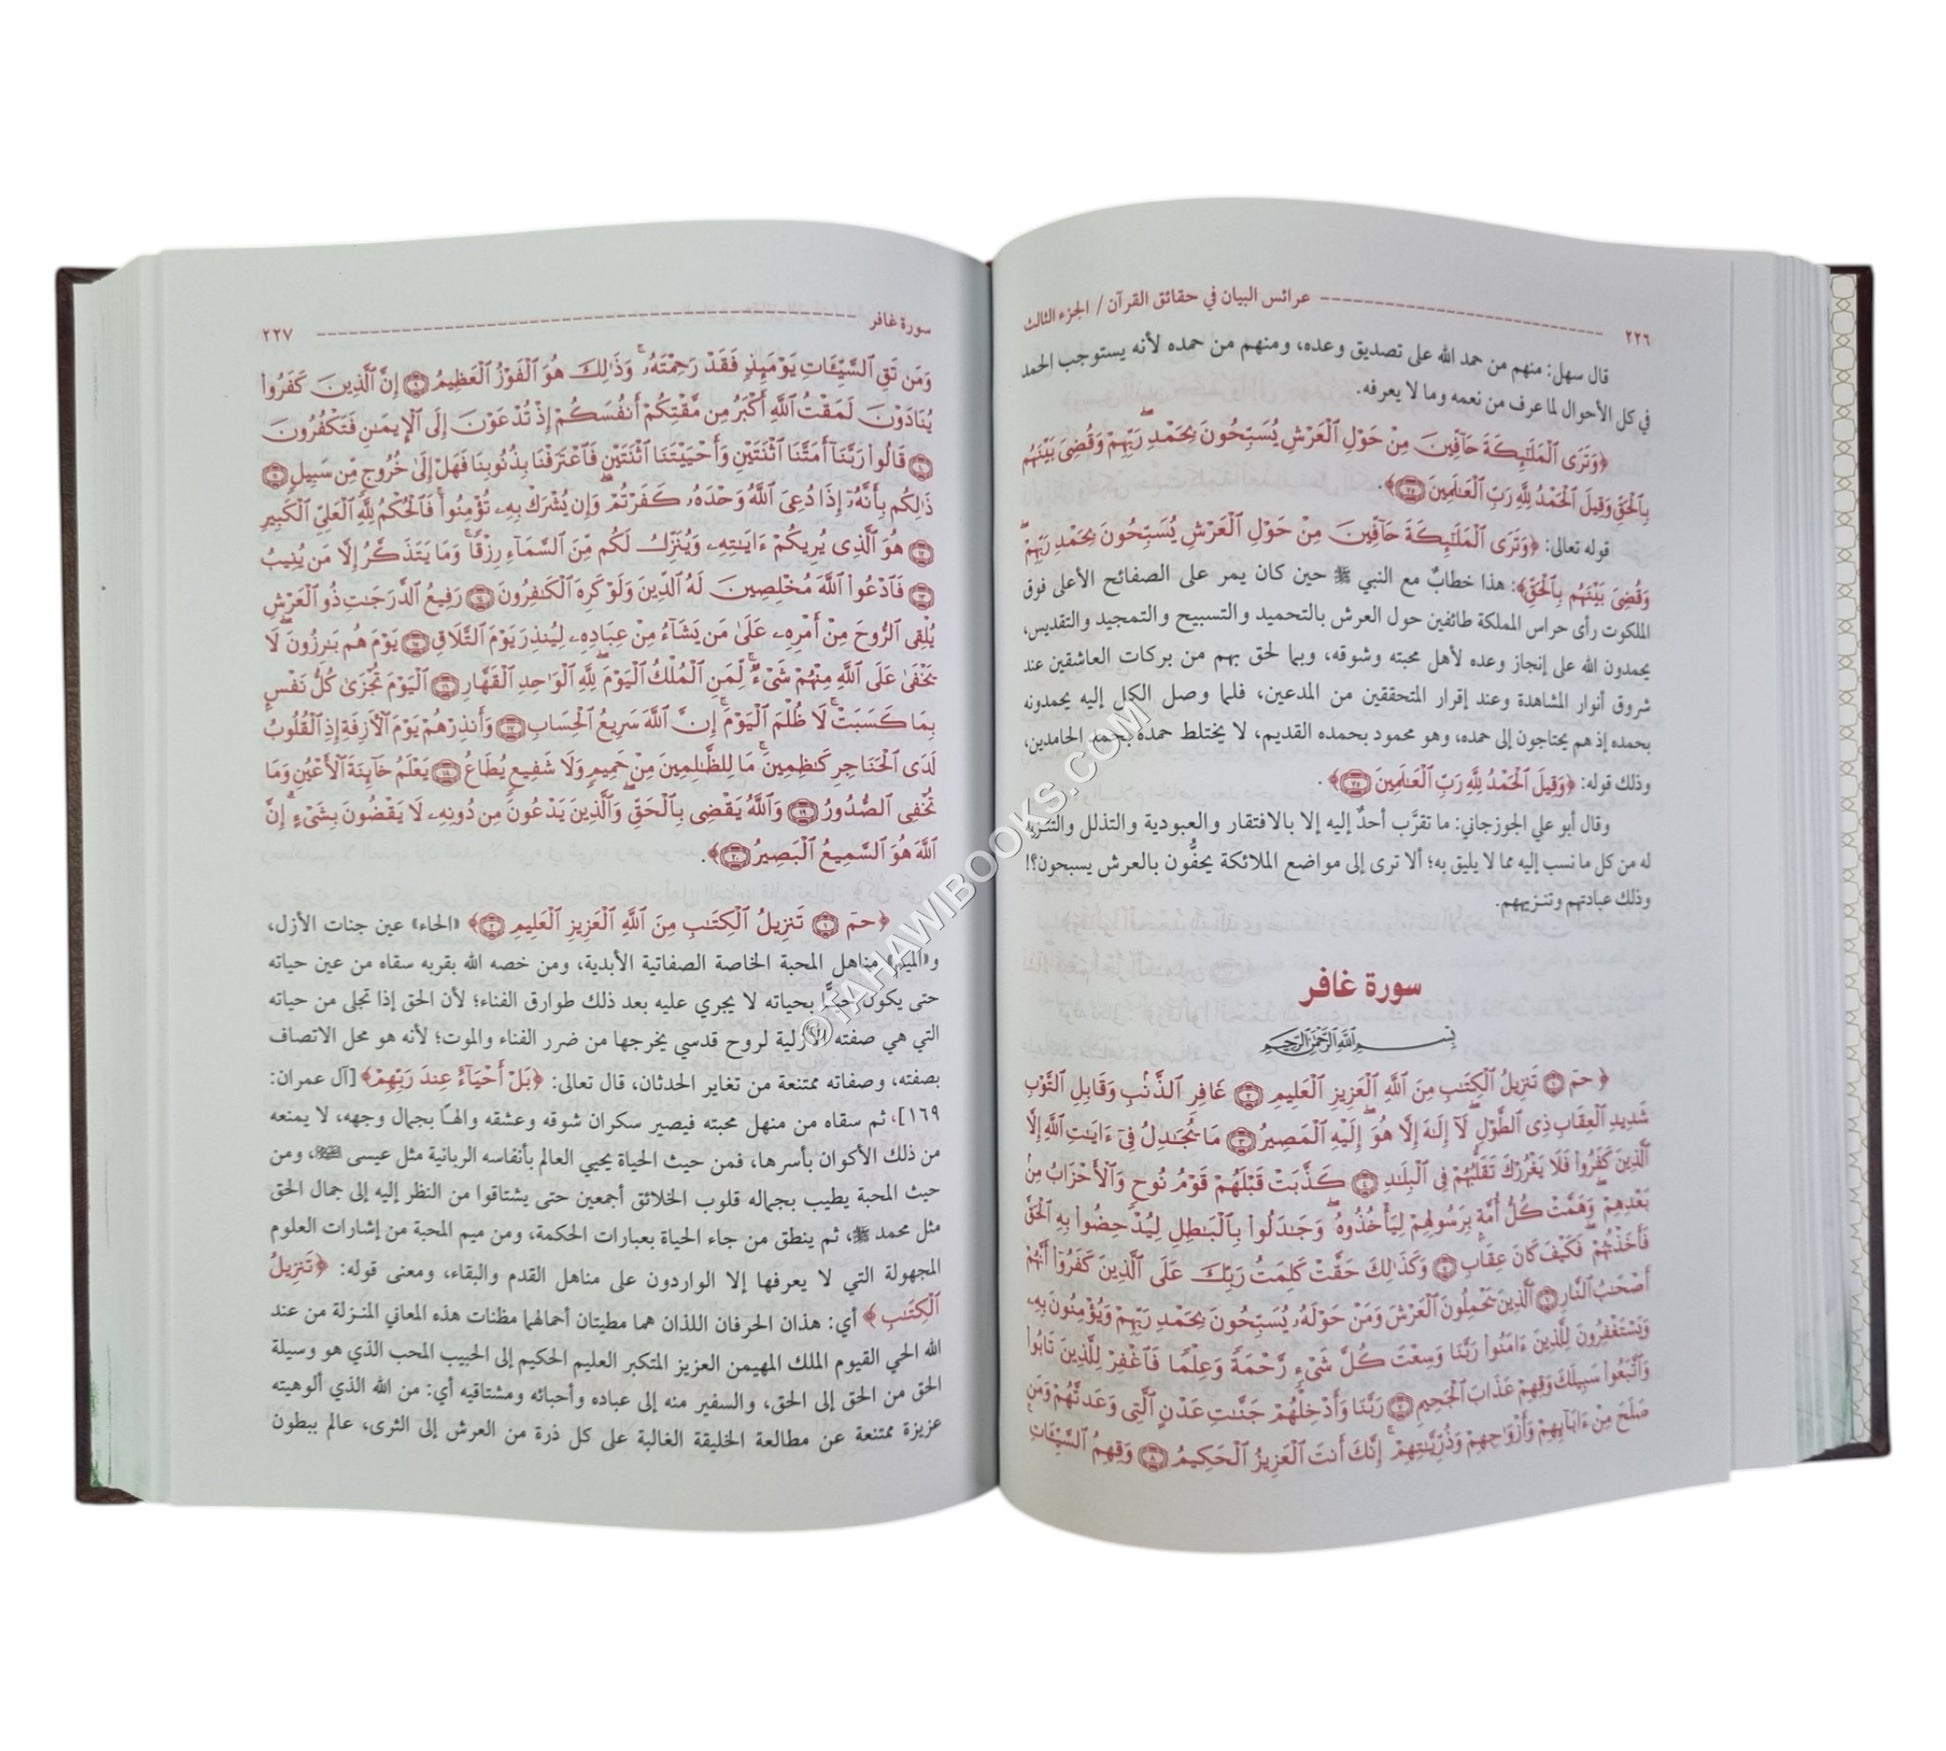 ٢٢٦ عرائس البيان في حقائق القرآن / الجزء الثالث
قال سهل: منهم من حمد الله على تصديق وعده، ومنهم من حمده لأنه يستوجب الحمد
في كل الأحوال لما عرف من نعمه وما لا يعرفه.
﴿وَتَرَى ٱلْمَلَـٰٓئِكَةَ حَآفِّينَ مِنْ حَوْلِ ٱلْعَرْشِ يُسَبِّحُونَ بِحَمْدِ رَبِّهِمْ ۖ وَقُضِىَ بَيْنَهُم
بِٱلْحَقِّ وَقِيلَ ٱلْحَمْدُ لِلَّهِ رَبِّ ٱلْعَـٰلَمِينَ ٧٥﴾.
قوله تعالى: ﴿وَتَرَى ٱلْمَلَـٰٓئِكَةَ حَآفِّينَ مِنْ حَوْلِ ٱلْعَرْشِ يُسَبِّحُونَ بِحَمْدِ رَبِّهِمْ ۖ
وَقُضِىَ بَيْنَهُم بِٱلْحَقِّ﴾: هذا خطابٌ مع النبي ﷺ حين كان يمر على الصفائح الأعلى فوق
الملكوت رأى حراس المملكة طائفين حول العرش بالتحميد والتسبيح والتمجيد والتقديس،
يحمدون الله على إنجاز وعده لأهل محبته وشوقه، وبما لحق بهم من بركات العاشقين عند
شروق أنوار المشاهدة وعند إقرار المتحققين من المدعين، فلما وصل الكل إليه يحمدونه
بحمده إذ هم يحتاجون إلى حمده، وهو محمود بحمده القديم، لا يختلط حمده بحمد الحامدين،
وذلك قوله: ﴿وَقِيلَ ٱلْحَمْدُ لِلَّهِ رَبِّ ٱلْعَـٰلَمِينَ ٧٥﴾.
وقال أبو علي الجوزجاني: ما تقرَّب أحدٌ إليه إلا بالافتقار والعبودية والتذلل والتنزيه
له من كل ما نسب إليه مما لا يليق به؛ ألا ترى إلى مواضع الملائكة يحفُّون بالعرش يسبحون؟!
وذلك عبادتهم وتنزيههم.
سورة غافر
بِسْمِ ٱللَّهِ ٱلرَّحْمَـٰنِ ٱلرَّحِيمِ
﴿حمٓ ١ تَنزِيلُ ٱلْكِتَـٰبِ مِنَ ٱللَّهِ ٱلْعَزِيزِ ٱلْعَلِيمِ ٢ غَافِرِ ٱلذَّنۢبِ وَقَابِلِ ٱلتَّوْبِ
شَدِيدِ ٱلْعِقَابِ ذِى ٱلطَّوْلِ ۖ لَآ إِلَـٰهَ إِلَّا هُوَ ۖ إِلَيْهِ ٱلْمَصِيرُ ٣ مَا يُجَـٰدِلُ فِىٓ ءَايَـٰتِ ٱللَّهِ إِلَّا
ٱلَّذِينَ كَفَرُوا۟ فَلَا يَغْرُرْكَ تَقَلُّبُهُمْ فِى ٱلْبِلَـٰدِ ٤ كَذَّبَتْ قَبْلَهُمْ قَوْمُ نُوحٍ وَٱلْأَحْزَابُ مِنۢ
بَعْدِهِمْ ۖ وَهَمَّتْ كُلُّ أُمَّةٍۭ بِرَسُولِهِمْ لِيَأْخُذُوهُ ۖ وَجَـٰدَلُوا۟ بِٱلْبَـٰطِلِ لِيُدْحِضُوا۟ بِهِ ٱلْحَقَّ
فَأَخَذْتُهُمْ ۖ فَكَيْفَ كَانَ عِقَابِ ٥ وَكَذَٰلِكَ حَقَّتْ كَلِمَتُ رَبِّكَ عَلَى ٱلَّذِينَ كَفَرُوٓا۟ أَنَّهُمْ
أَصْحَـٰبُ ٱلنَّارِ ٦ ٱلَّذِينَ يَحْمِلُونَ ٱلْعَرْشَ وَمَنْ حَوْلَهُۥ يُسَبِّحُونَ بِحَمْدِ رَبِّهِمْ وَيُؤْمِنُونَ بِهِۦ
وَيَسْتَغْفِرُونَ لِلَّذِينَ ءَامَنُوا۟ رَبَّنَا وَسِعْتَ كُلَّ شَىْءٍ رَّحْمَةً وَعِلْمًا فَٱغْفِرْ لِلَّذِينَ تَابُوا۟
وَٱتَّبَعُوا۟ سَبِيلَكَ وَقِهِمْ عَذَابَ ٱلْجَحِيمِ ٧ رَبَّنَا وَأَدْخِلْهُمْ جَنَّـٰتِ عَدْنٍ ٱلَّتِى وَعَدتَّهُمْ وَمَن
صَلَحَ مِنْ ءَابَآئِهِمْ وَأَزْوَٰجِهِمْ وَذُرِّيَّـٰتِهِمْ ۚ إِنَّكَ أَنتَ ٱلْعَزِيزُ ٱلْحَكِيمُ ٨ وَقِهِمُ ٱلسَّيِّـَٔاتِ ۚ
سورة غافر ٢٢٧
وَمَن تَقِ ٱلسَّيِّـَٔاتِ يَوْمَئِذٍ فَقَدْ رَحِمْتَهُۥ ۚ وَذَٰلِكَ هُوَ ٱلْفَوْزُ ٱلْعَظِيمُ ٩ إِنَّ ٱلَّذِينَ كَفَرُوا۟
يُنَادَوْنَ لَمَقْتُ ٱللَّهِ أَكْبَرُ مِن مَّقْتِكُمْ أَنفُسَكُمْ إِذْ تُدْعَوْنَ إِلَى ٱلْإِيمَـٰنِ فَتَكْفُرُونَ
١٠ قَالُوا۟ رَبَّنَآ أَمَتَّنَا ٱثْنَتَيْنِ وَأَحْيَيْتَنَا ٱثْنَتَيْنِ فَٱعْتَرَفْنَا بِذُنُوبِنَا فَهَلْ إِلَىٰ خُرُوجٍ مِّن سَبِيلٍ ١١
ذَٰلِكُم بِأَنَّهُۥٓ إِذَا دُعِىَ ٱللَّهُ وَحْدَهُۥ كَفَرْتُمْ ۖ وَإِن يُشْرَكْ بِهِۦ تُؤْمِنُوا۟ ۚ فَٱلْحُكْمُ لِلَّهِ ٱلْعَلِىِّ ٱلْكَبِيرِ
١٢ هُوَ ٱلَّذِى يُرِيكُمْ ءَايَـٰتِهِۦ وَيُنَزِّلُ لَكُم مِّنَ ٱلسَّمَآءِ رِزْقًا ۚ وَمَا يَتَذَكَّرُ إِلَّا مَن يُنِيبُ
١٣ فَٱدْعُوا۟ ٱللَّهَ مُخْلِصِينَ لَهُ ٱلدِّينَ وَلَوْ كَرِهَ ٱلْكَـٰفِرُونَ ١٤ رَفِيعُ ٱلدَّرَجَـٰتِ ذُو ٱلْعَرْشِ
يُلْقِى ٱلرُّوحَ مِنْ أَمْرِهِۦ عَلَىٰ مَن يَشَآءُ مِنْ عِبَادِهِۦ لِيُنذِرَ يَوْمَ ٱلتَّلَاقِ ١٥ يَوْمَ هُم بَـٰرِزُونَ ۖ لَا
يَخْفَىٰ عَلَى ٱللَّهِ مِنْهُمْ شَىْءٌ ۚ لِّمَنِ ٱلْمُلْكُ ٱلْيَوْمَ ۖ لِلَّهِ ٱلْوَٰحِدِ ٱلْقَهَّارِ ١٦ ٱلْيَوْمَ تُجْزَىٰ كُلُّ نَفْسٍۭ
بِمَا كَسَبَتْ ۚ لَا ظُلْمَ ٱلْيَوْمَ ۚ إِنَّ ٱللَّهَ سَرِيعُ ٱلْحِسَابِ ١٧ وَأَنذِرْهُمْ يَوْمَ ٱلْـَٔازِفَةِ إِذِ ٱلْقُلُوبُ
لَدَى ٱلْحَنَاجِرِ كَـٰظِمِينَ ۚ مَا لِلظَّـٰلِمِينَ مِنْ حَمِيمٍ وَلَا شَفِيعٍ يُطَاعُ ١٨ يَعْلَمُ خَآئِنَةَ ٱلْأَعْيُنِ وَمَا
تُخْفِى ٱلصُّدُورُ ١٩ وَٱللَّهُ يَقْضِى بِٱلْحَقِّ ۖ وَٱلَّذِينَ يَدْعُونَ مِن دُونِهِۦ لَا يَقْضُونَ بِشَىْءٍ ۗ إِنَّ
ٱللَّهَ هُوَ ٱلسَّمِيعُ ٱلْبَصِيرُ ٢٠﴾.
﴿حمٓ ١ تَنزِيلُ ٱلْكِتَـٰبِ مِنَ ٱللَّهِ ٱلْعَزِيزِ ٱلْعَلِيمِ ٢﴾ «الحاء» عين جنات الأزل،
و«الميم» مناهل المحبة الخاصة الصفاتية الأبدية، ومن خصه الله بقربه سقاه من عين حياته
حتى يكون حيًّا بحياته لا يجري عليه بعد ذلك طوارق الفناء؛ لأن الحق إذا تجلى من حياته
التي هي صفته الأزلية لروح قدسي يخرجها من ضرر الفناء والموت؛ لأنه هو محل الاتصاف
بصفته، وصفاته ممتنعة من تغاير الحدثان، قال تعالى: ﴿بَلْ أَحْيَآءٌ عِندَ رَبِّهِمْ﴾ [آل عمران:
١٦٩]، ثم سقاه من منهل محبته فيصير سكران شوقه وعشقه والهًا بجمال وجهه، لا يمنعه
من ذلك الأكوان بأسرها، فمن حيث الحياة يحيي العالم بأنفاسه الربانية مثل عيسى، ومن
حيث المحبة يطيب بجماله قلوب الخلائق أجمعين حتى يشتاقوا من النظر إليه إلى جمال الحق
مثل محمد ﷺ، ثم ينطق من جاء الحياة بعبارات الحكمة، ومن ميم المحبة من إشارات العلوم
المجهولة التي لا يعرفها إلا الواردون على مناهل القدم والبقاء، ومعنى قوله: ﴿تَنزِيلُ
ٱلْكِتَـٰبِ﴾ أي: هذان الحرفان اللذان هما مطيتان أحمالهما مظنات هذه المعاني المنزلة من عند
الله الحي القيوم الملك المهيمن العزيز المتكبر العليم الحكيم إلى الحبيب المحب الذي هو وسيلة
الحق من الحق إلى الحق، والسفير منه إلى عباده وأحبائه ومشتاقيه أي: من الله الذي ألوهيته
عزيزة ممتنعة عن مطالعة الخليقة الغالبة على كل ذرة من العرش إلى الثرى، عالم ببطون
©TAHAWIBOOKS.COM